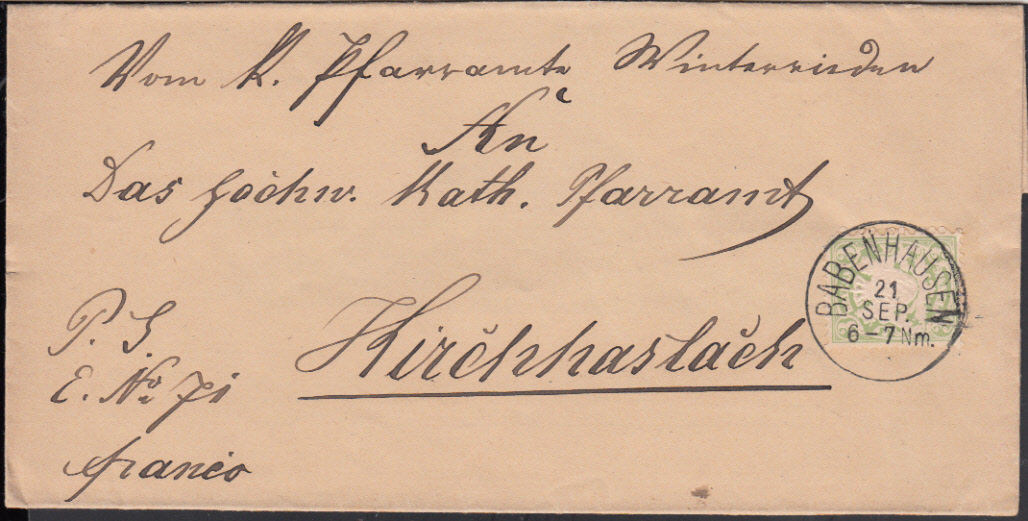 Vom K. Pfarramte Winterrieden
An
Das hochw. Kath. Pfarramt
Kirchhaslach
P. S.
E. No 71
franco
BABENHAUSEN
21 SEP.
6-7 Nm.